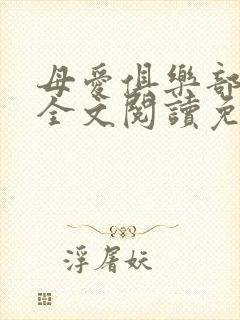 母愛俱樂部
全文閱讀免
浮屠妖